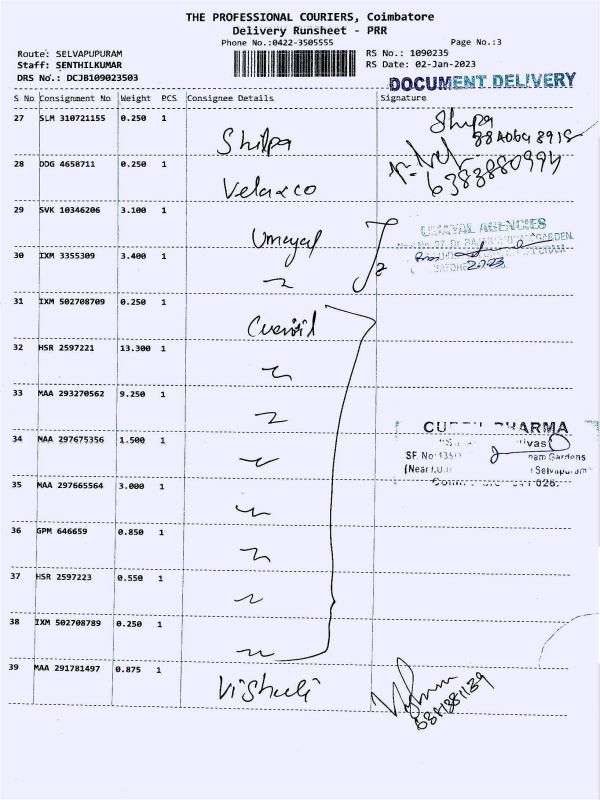 THE PROFESSIONAL COURIERS, Coimbatore
Delivery Runsheet - PRR
Phone No.:0422-3505555
Page No.:3
Route: SELVAPUPURAM
RS No.: 1090235
Staff: SENTHILKUMAR
RS Date: 02-Jan-2023
DRS No.: DCJB109023503
DOCUMENT DELIVERY
S No Consignment No Weight PCS Consignee Details Signature
27 SLM 310721155 0.250 1 Shilpa
28 DDG 4658711 0.250 1
6383880994
29 SVK 10346206 3.100 1 Umayal
UMAYAL AGENCIES
30 IXM 3355309 3.400 1
31 IXM 502708709 0.250 1
32 HSR 2597221 13.300 1
33 MAA 293270562 9.250 1
PHARMA
34 MAA 297675356 1.500 1
SF. No
Gardens
(Near
Selvapuram
35 MAA 297665564 3.000 1
36 GPM 646659 0.850 1
37 HSR 2597223 0.550 1
38 IXM 502708789 0.250 1
39 MAA 291781497 0.875 1